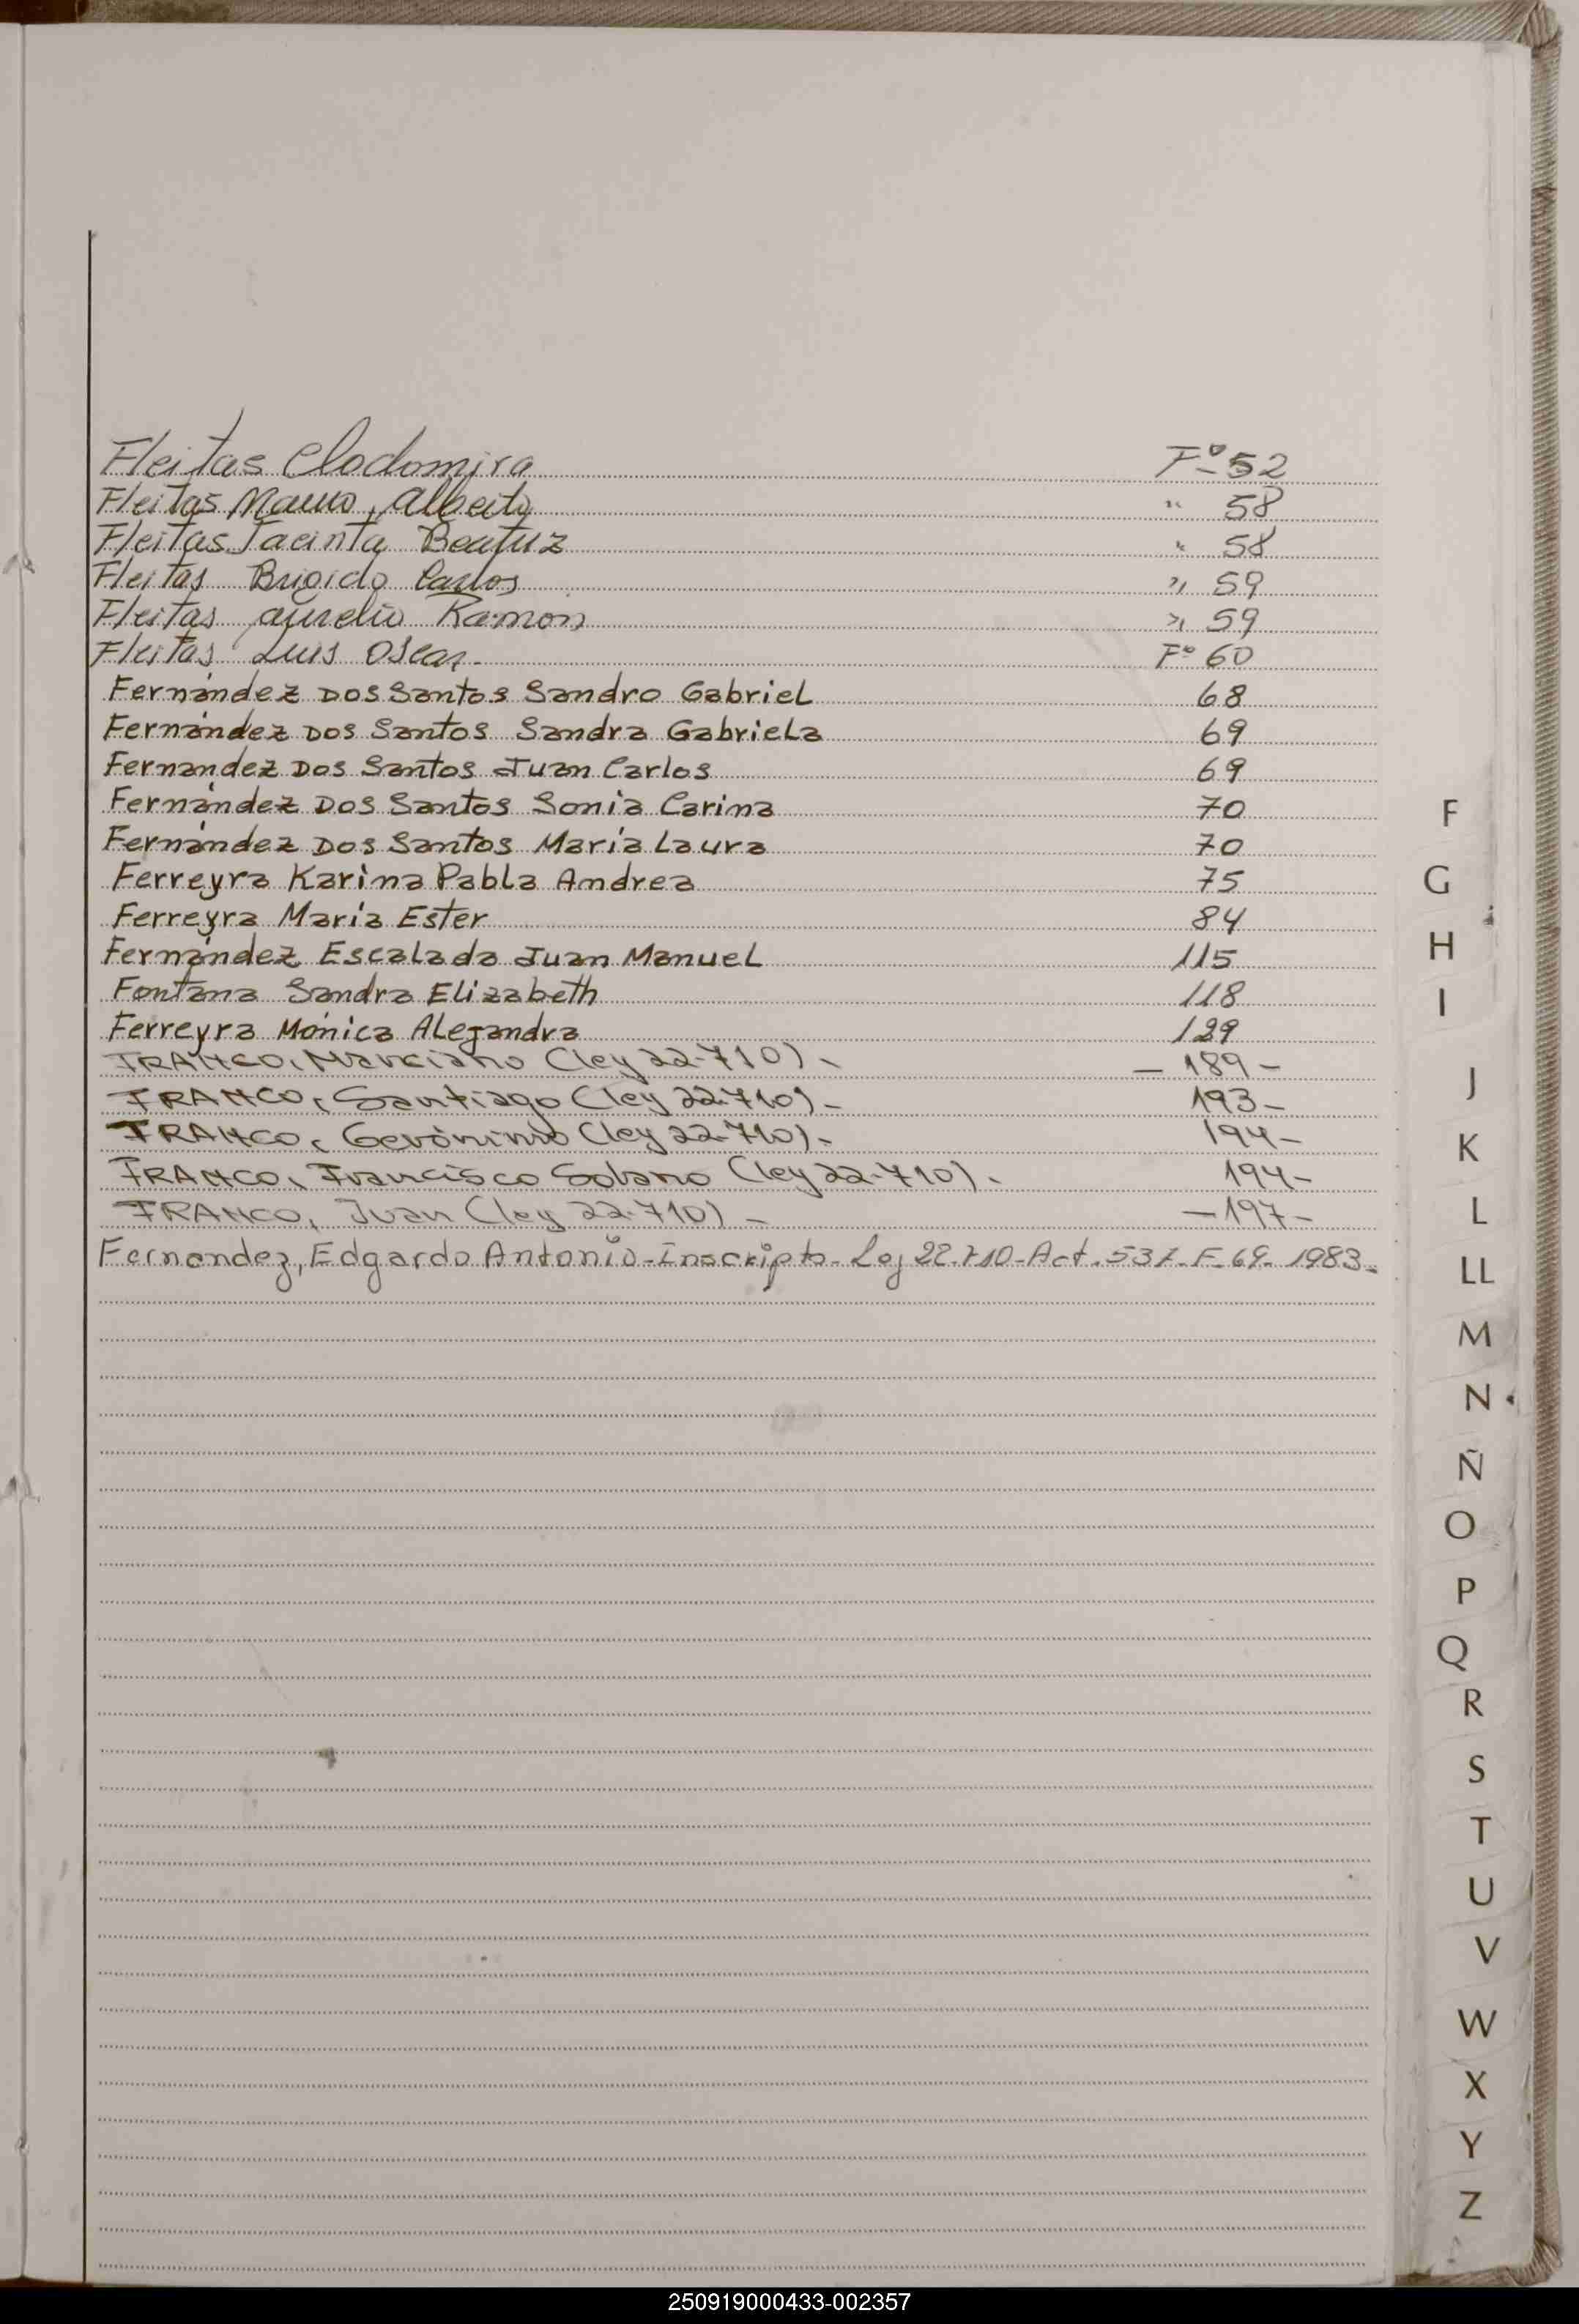 Fleitas Clodomira Fº 52
Fleitas Mauro, Alberto " 58
Fleitas Jacinta Beatriz " 58
Fleitas Brigido Carlos " 59
Fleitas Aurelio Ramon " 59
Fleitas Luis Oscar. Fº 60
Fernández Dos Santos Sandro Gabriel 68
Fernández Dos Santos Sandra Gabriela 69
Fernandez Dos Santos Juan Carlos 69
Fernández Dos Santos Sonia Carina 70
Fernández Dos Santos María Laura 70
Ferreyra Karina Pabla Andrea 75
Ferreyra María Ester 84
Fernández Escalada Juan Manuel 115
Fontana Sandra Elizabeth 118
Ferreyra Mónica Alejandra 129
FRANCO, Marciano (ley 22.710) - - 189 -
FRANCO, Santiago (ley 22.710) - 193 -
FRANCO, Gerónimo (ley 22.710) - 194 -
FRANCO, Francisco Solano (ley 22.710) - 194 -
FRANCO, Juan (ley 22.710) - - 197 -
Fernandez, Edgardo Antonio - Inscripto - Ley 22.710 - Act. 537 - F - 69 - 1983 -
F
G
H
I
J
K
L
LL
M
N
Ñ
O
P
Q
R
S
T
U
V
W
X
Y
Z
250919000433-002357